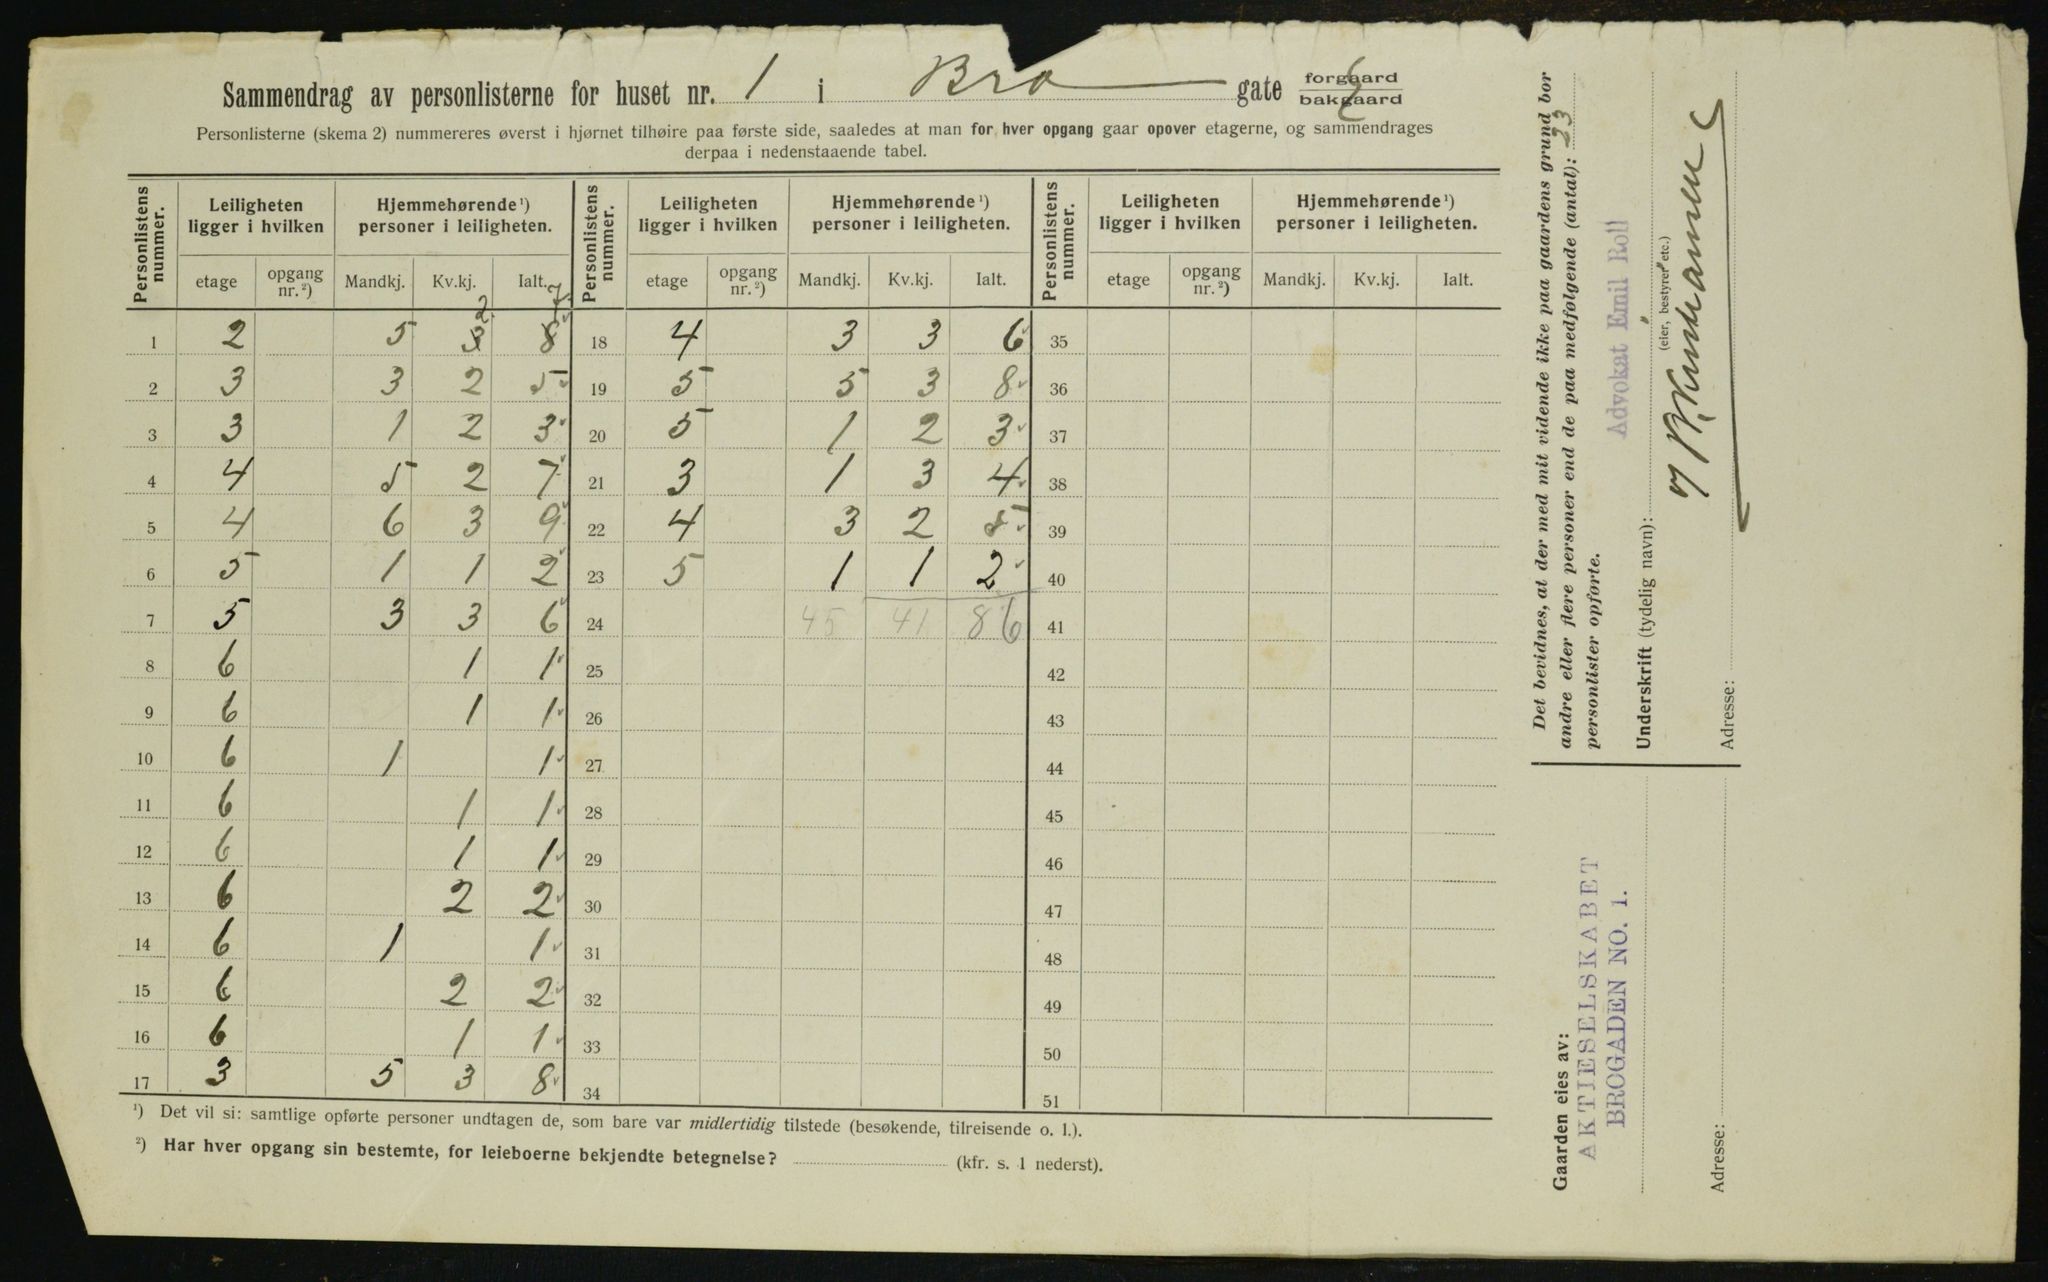 Sammendrag av personlisterne for huset nr. 1 i Bro gate forgaard bakgaard
Personlisterne (skema 2) nummereres øverst i hjørnet tilhøire paa første side, saaledes at man for hver opgang gaar opover etagerne, og sammendrages
derpaa i nedenstaaende tabel.
Personlistens nummer. Leiligheten ligger i hvilken Hjemmehørende ¹) personer i leiligheten. Personlistens nummer. Leiligheten ligger i hvilken Hjemmehørende ¹) personer i leiligheten. Personlistens nummer. Leiligheten ligger i hvilken Hjemmehørende ¹) personer i leiligheten.
etage opgang nr. ²) Mandkj. Kv.kj. Ialt. etage opgang nr. ²) Mandkj. Kv.kj. Ialt. etage opgang nr. ²) Mandkj. Kv.kj. Ialt.
2 7
1 2 5 3 8 18 4 3 3 6 35
2 3 3 2 5 19 5 5 3 8 36
3 3 1 2 3 20 5 1 2 3 37
4 4 5 2 7 21 3 1 3 4 38
5 4 6 3 9 22 4 3 2 5 39
6 5 1 1 2 23 5 1 1 2 40
7 5 3 3 6 24 45 41 86 41
8 6 1 1 25 42
9 6 1 1 26 43
10 6 1 1 27 44
11 6 1 1 28 45
12 6 1 1 29 46
13 6 2 2 30 47
14 6 1 1 31 48
15 6 2 2 32 49
16 6 1 1 33 50
17 3 5 3 8 34 51
¹) Det vil si: samtlige opførte personer undtagen de, som bare var midlertidig tilstede (besøkende, tilreisende o. l.).
²) Har hver opgang sin bestemte, for leieboerne bekjendte betegnelse? (kfr. s. 1 nederst).
Det bevidnes, at der med mit vidende ikke paa gaardens grund bor
andre eller flere personer end de paa medfølgende (antal): 23
personlister opførte.
Advokat Emil Roll
Underskrift (tydelig navn):
(eier, bestyrer etc.)
Adresse:
Gaarden eies av:
AKTIESELSKABET
BROGADEN NO. 1.
Adresse: